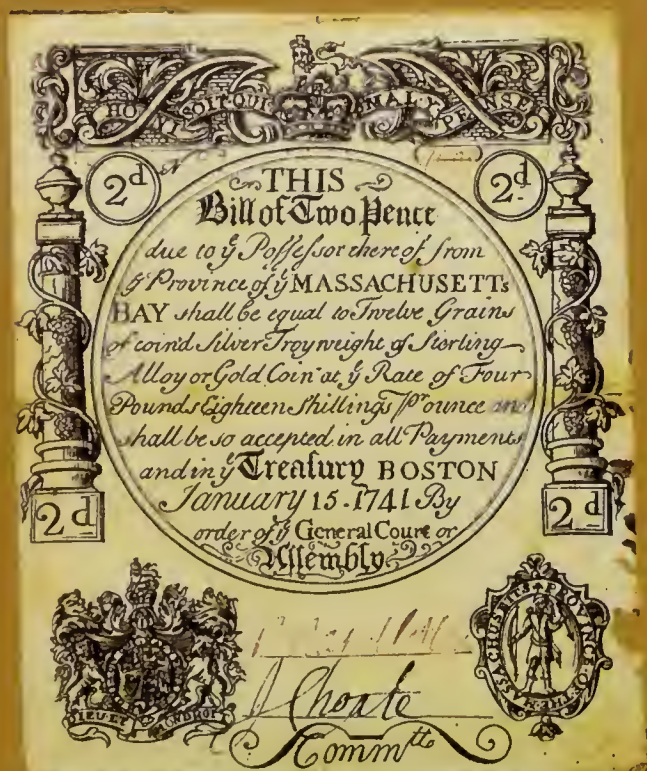 HONI SOIT QUI MAL Y PENSE
2d No 2d
THIS
Bill of Two Pence
due to ẏ Poſſeſsor thereof from
ẏ Province of ẏ MASSACHUSETTs
BAY shall be equal to Twelve Grains
of coin'd Silver Troy weight of Sterling
Alloy or Gold Coin at ẏ Rate of Four
Pounds Eighteen Shillings ℘r ounce and
shall be so accepted in all Payments
and in ẏ Treaſury BOSTON
January 15. 1741 By
order of ẏ General Court or
Aſſembly
2d 2d
DIEU ET MON DROIT
J Choate
Committe
MASSACHUSETTS PROVINCE OF THE